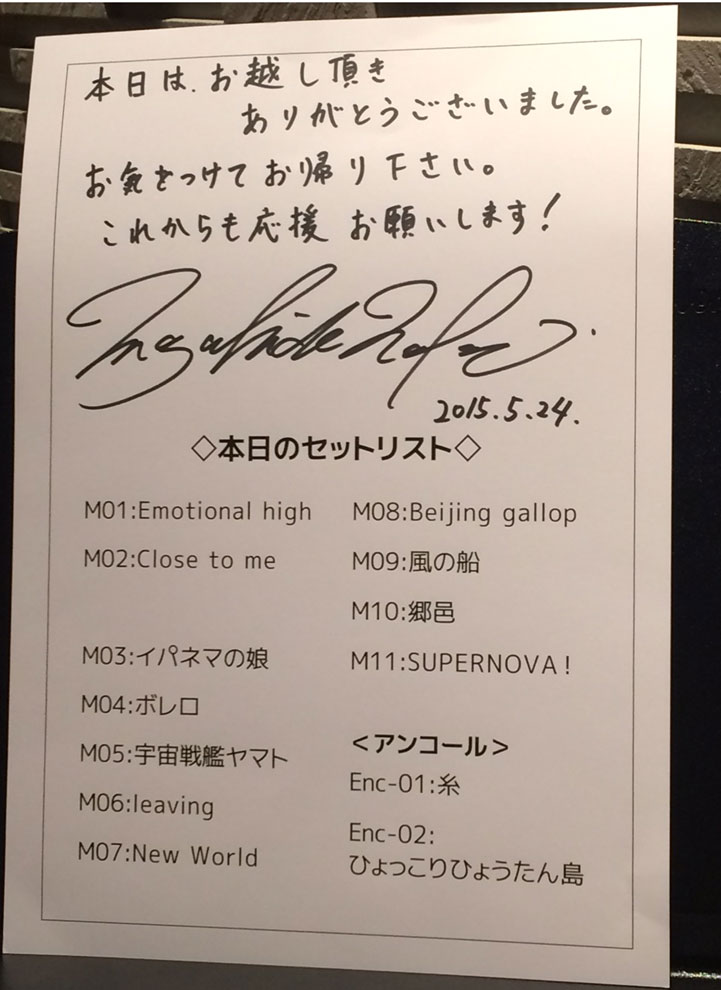 本日は、お越し頂き
ありがとうございました。
お気をつけてお帰り下さい。
これからも応援 お願いします!
2015.5.24.
◇本日のセットリスト◇
M01:Emotional high
M02:Close to me
M03:イパネマの娘
M04:ボレロ
M05:宇宙戦艦ヤマト
M06:leaving
M07:New World
M08:Beijing gallop
M09:風の船
M10:郷邑
M11:SUPERNOVA!
<アンコール>
Enc-01:糸
Enc-02:
ひょっこりひょうたん島